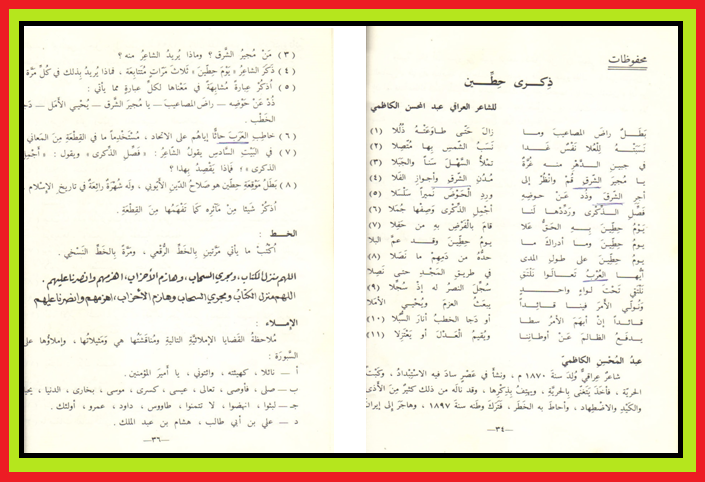 محفوظات
ذكرى حطّين
للشاعر العراقي عبد المحسن الكاظمي
بَطَلٌ راضَ المصاعيبَ وما زالَ حَتّى طاوَعَتْهُ ذُلُلا (١)
نَسَبَتْهُ لِلْعُلا نَفْسٌ غَدا نَسَبُ الشَّمسِ بِها مُتَّصِلا (٢)
في جبينِ الدَّهْرِ منه غُرَّةٌ تملأُ السَّهْلَ سَناً والجَبَلا (٣)
يا مُجيرَ الشَّرقِ قُمْ وانْظُرْ إلى مُدُنِ الشَّرقِ وأجوازِ الفَلا (٤)
أجرِ الشرقَ وذُد عَنْ حوضِهِ ورِدِ الْحَوْضَ نَميراً سَلْسَلا (٥)
فَضِّلِ الذِّكْرى وَرَدِّدْها لَنا أجْمِلِ الذِّكْرى وَصِفْها جُمَلا (٦)
يومُ حِطّينَ بِهِ الحَقُّ عَلا قامَ بالْفَرْضِ بِهِ من حَفِلا (٧)
يومُ حِطّينَ وما أدراكَ ما يومُ حِطّينَ وقد عمَّ البلا
يومُ حِطّينَ على طولِ المدى حدُّهُ من دَمِهِمْ ما نَصَلا (٨)
أيُّها العُرْبُ تَعالَوا نَلْتَقي في طريقِ المَجْدِ حتى نَصِلا
نَلْتَقي تَحْتَ لِواءٍ واحدٍ سُجِّلَ النصرُ له إذْ سُجِّلا (٩)
وَنُوَلّي الأمرَ فينا قائداً يبعثُ العزمَ ويُحْيي الأملا
قائداً إنْ أبْهَمَ الأمْرُ سطا أو دَجا الخطبُ أنارَ السُّبُلا (١٠)
يدفعُ الظالمَ عَنْ أوطانِنا ويُقيمُ العَدْلَ أو يَعْتَزِلا (١١)
عبدُ المُحْسنِ الكاظميّ
شاعرٌ عِراقيٌّ وُلِدَ سنةَ ١٨٧٠ م ، ونشأ في عَصْرٍ سادَ فيه الاسْتِبْدادُ ، وكُبِتَتْ
الحريّة ، فأخذَ يَتَغَنّى بِالحُرّيةِ ، ويهتِفُ بِذِكْرِها ، وقد نالَه من ذلك كثيرٌ مِنَ الأذى
والكَيْدِ والاضْطِهادِ ، وأحاطَ به الخَطَر ، فَتَركَ وطنَه سنةَ ١٨٩٧ ، وهاجَرَ إلى إيران
—٣٤—
(٣) مَنْ مُجيرُ الشَّرقِ ؟ وماذا يُريدُ الشاعِرُ منه ؟
(٤) ذَكَرَ الشاعرُ « يَوْمَ حِطّينَ » ثلاثَ مَرّاتٍ مُتَتابِعَة ، فماذا يُريدُ بِذلك في كُلِّ مَرَّة
(٥) اُذكُرْ عِبارةً مُشابِهَةً في مَعْناها لِكلِّ عبارةٍ مما يأتي :
ذُدْ عَنْ حَوْضِهِ — راضَ المصاعيبَ — يا مُجيرَ الشَّرق — يُحْيي الأمَل —
الخَطْب .
(٦) خاطِبِ العَرَبَ حاثّاً إياهُم على الاتحاد ، مُسْتَخْدِماً ما في القِطْعَةِ مِنَ المَعاني
(٧) في البَيْتِ السَّادِسِ يقولُ الشَّاعِرُ : « فَضِّلِ الذِّكرى » ويقول : « أجْمِلِ
الذكرى » ؛ فماذا يَقْصِدُ بِهذا ؟
(٨) بَطَلُ مَوْقِعَةِ حِطّين هو صَلاحُ الدّينِ الأيّوبي ، ولَه شُهْرَةٌ رائِعَةٌ في تاريخِ الإسْلام
اُذكُرْ شَيئا مِنْ مَآثِرِه كَما تَفْهَمُها مِنَ القِطْعَةِ .
الخط :
اُكْتُبْ ما يأتي مَرَّتَينِ بِالخَطِّ الرُّقْعي ، ومَرَّةً بِالخَطِّ النَّسْخي .
اللهم منزل الكتاب ، ومجري السحاب ، وهازم الأحزاب ، اهزمهم وانصرنا عليهم .
اللهم منزل الكتاب ومجري السحاب وهازم الأحزاب ، اهزمهم وانصرنا عليهم
الإملاء :
مُلاحظةُ القَضايا الإملائيَّةِ التاليةِ ومُناقَشَتُها هي وَمَثيلاتُها ، وإملاؤها على
السَّبّورَة :
أ — نائلا ، كهيئته ، وائتوني ، يا أميرَ المؤمنين .
ب — صلى ، فأوصى ، تعالى ، عيسى ، كسرى ، موسى ، بخارى ، الدنيا ،
جـ — لبثوا ، انهضوا ، لا تتمنوا ، طاووس ، داود ، عمرو ، أولئك .
د — علي بن أبي طالب ، هشام بن عبد الملك .
—٣٦—